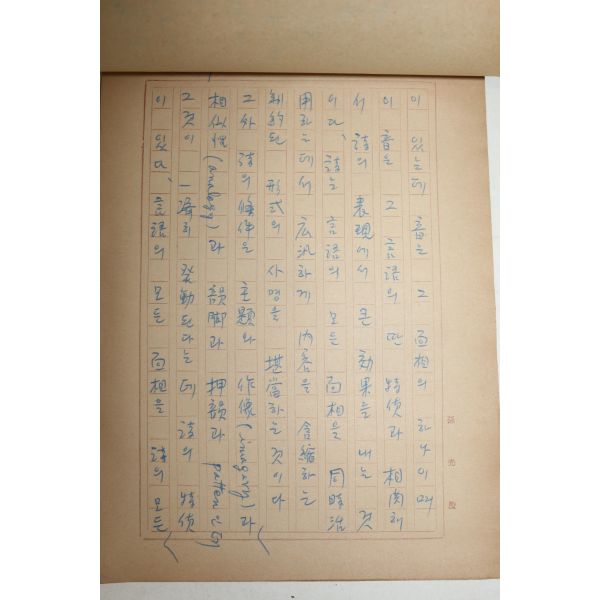 이 있는데 音은 그 面相의 하나이며
이 音은 그 言語의 딴 特侦과 相関해
서 詩의 表現에서 큰 効果를 내는 것
이다、詩는 言語의 모든 面相을 同時活
用하는데서 広汎하게 内容을 含縮하는
制約된 形式의 사명을 堪當하는것이다
그外 詩의 條件은 主題와 作像(imagery)과
相似性(analogy)과 韻脚과 押韻과 patten인데
그것이 一済히 発動된다는데 詩의 特侦
이 있다、言語의 모든 面相을 詩의 모든